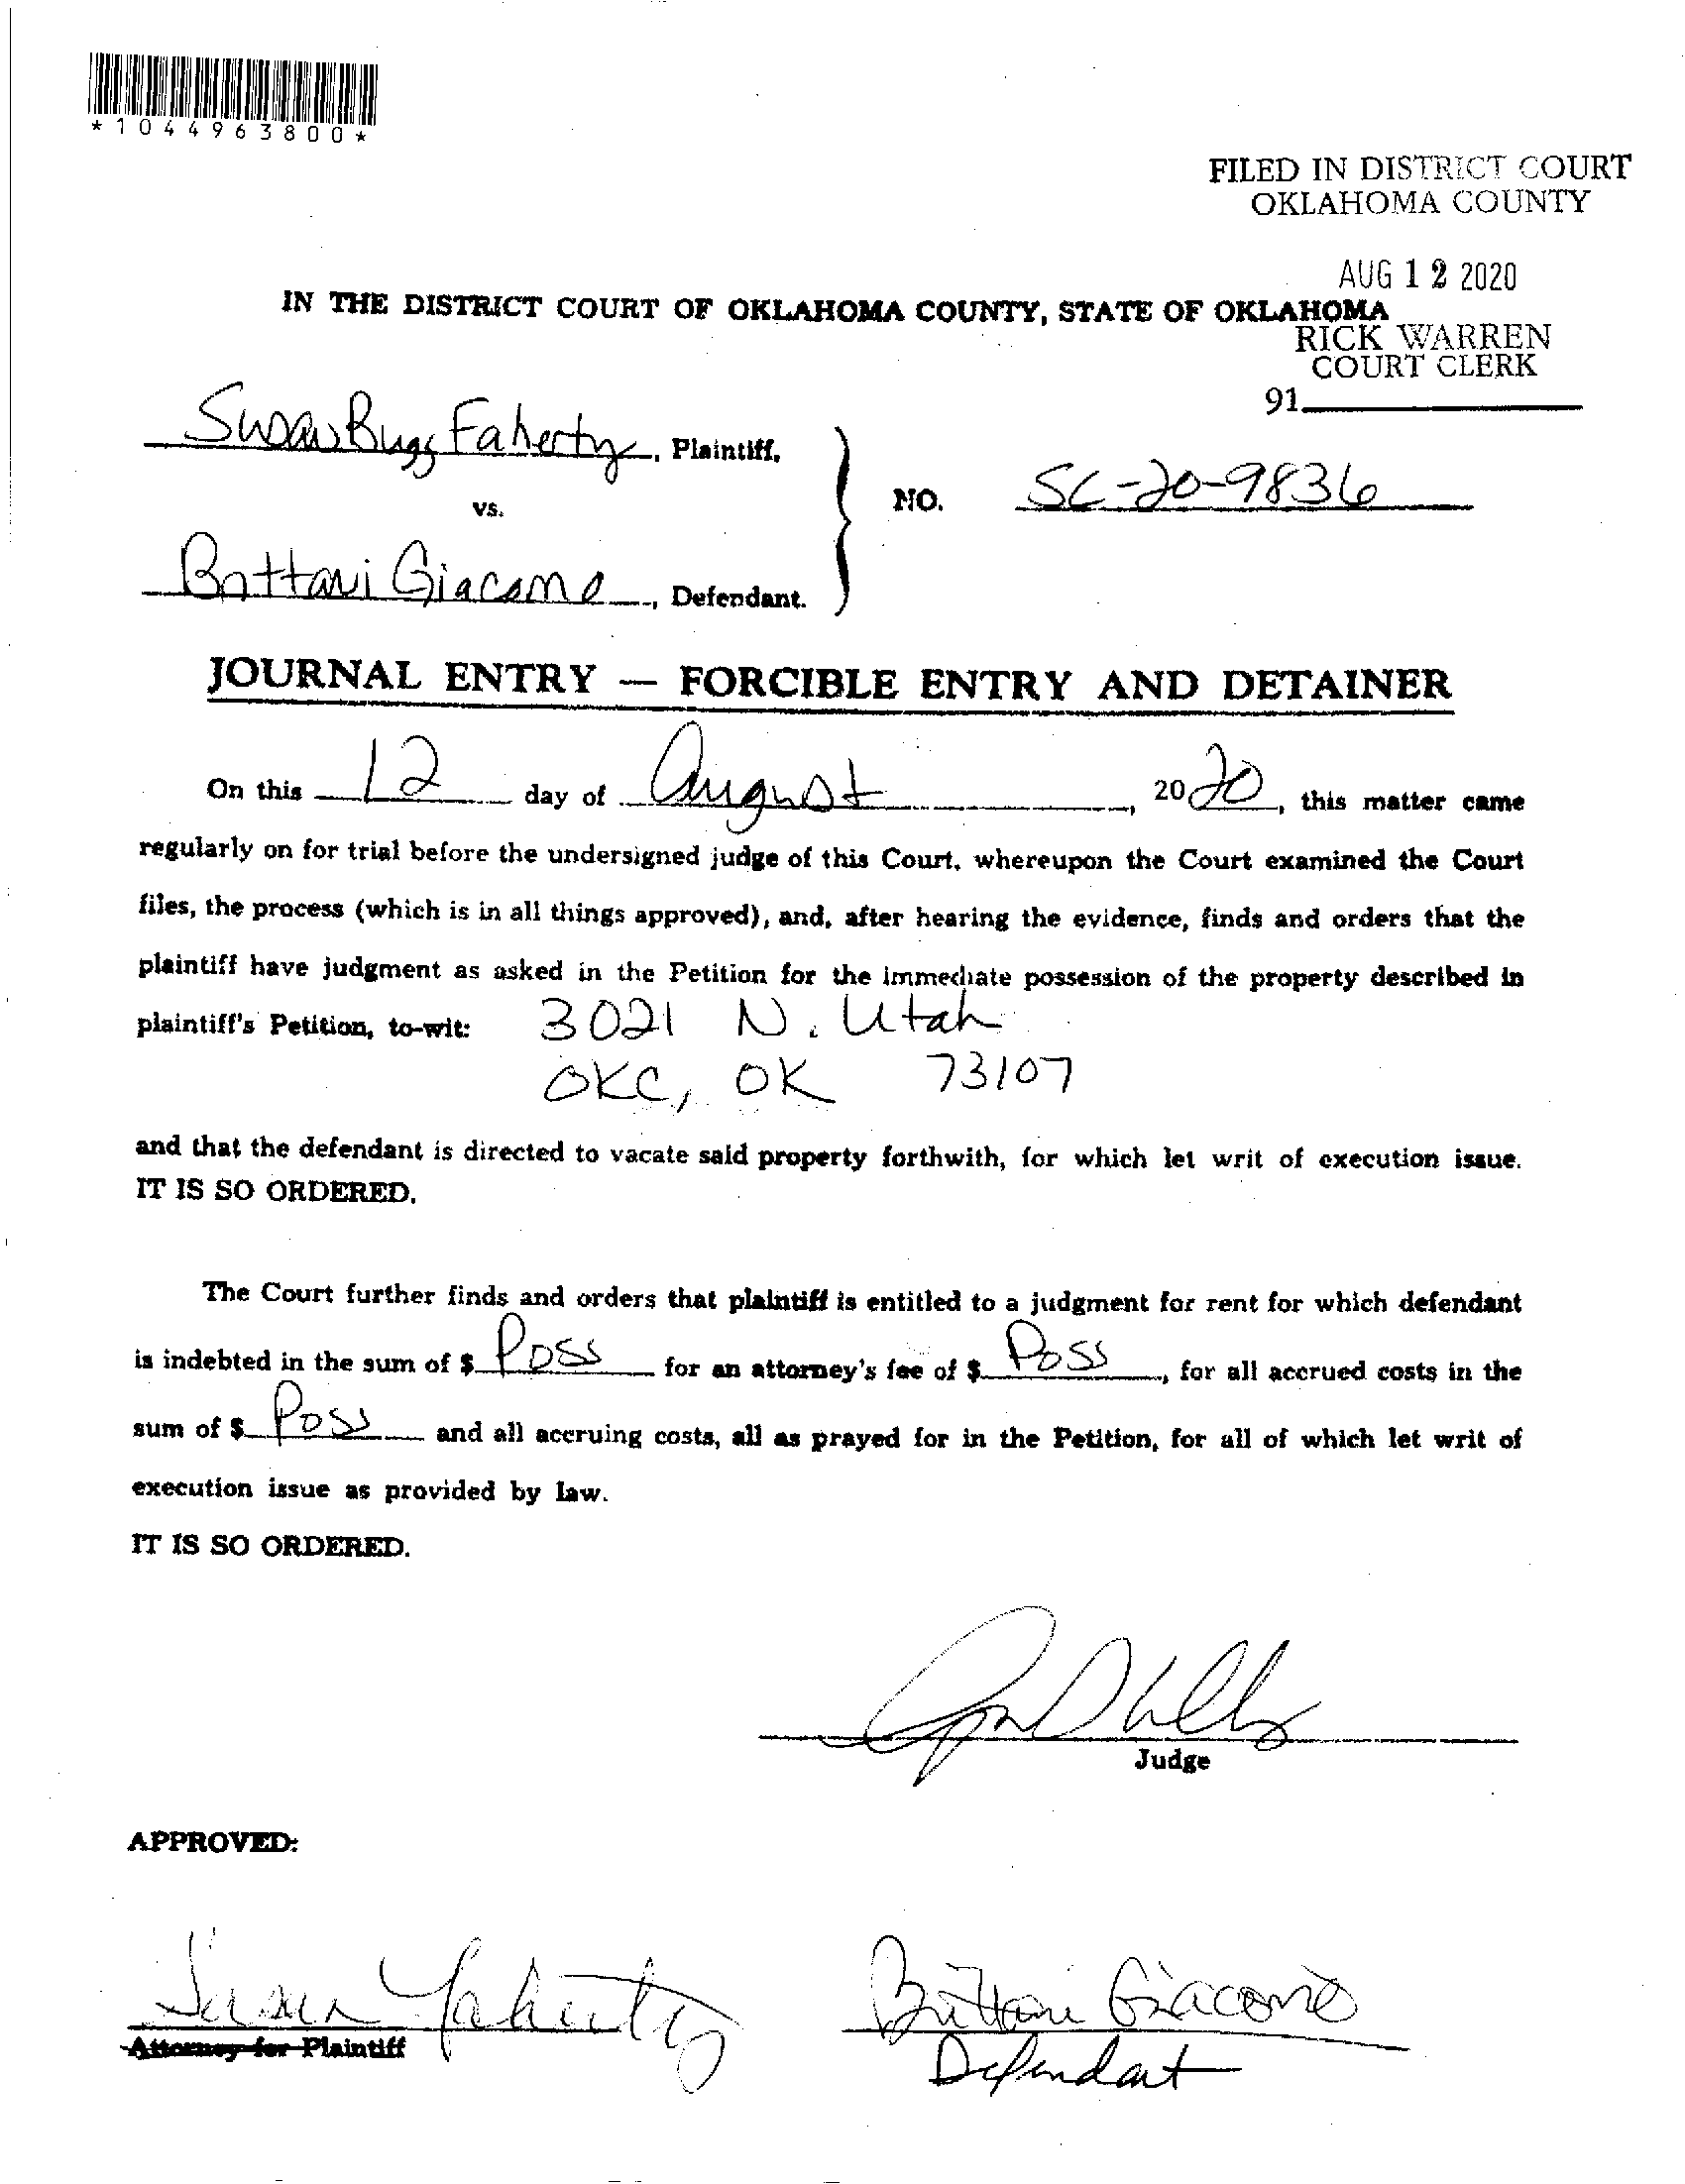 *1044963800*
FILED IN DISTRICT COURT
OKLAHOMA COUNTY
AUG 12 2020
IN THE DISTRICT COURT OF OKLAHOMA COUNTY, STATE OF OKLAHOMA
RICK WARREN
COURT CLERK
91
Susan Bugg Faherty, Plaintiff,
vs.
NO. SC-20-9836
Brittani Giacomo, Defendant.
JOURNAL ENTRY — FORCIBLE ENTRY AND DETAINER
On this 12 day of August, 2020, this matter came
regularly on for trial before the undersigned judge of this Court, whereupon the Court examined the Court
files, the process (which is in all things approved), and, after hearing the evidence, finds and orders that the
plaintiff have judgment as asked in the Petition for the immediate possession of the property described in
plaintiff's Petition, to-wit: 3021 N. Utah
OKC, OK 73107
and that the defendant is directed to vacate said property forthwith, for which let writ of execution issue.
IT IS SO ORDERED.
The Court further finds and orders that plaintiff is entitled to a judgment for rent for which defendant
is indebted in the sum of $ Poss for an attorney's fee of $ Poss, for all accrued costs in the
sum of $ Poss and all accruing costs, all as prayed for in the Petition, for all of which let writ of
execution issue as provided by law.
IT IS SO ORDERED.
Judge
APPROVED:
Susan Faherty
Attorney for Plaintiff
Brittani Giacomo
Defendant